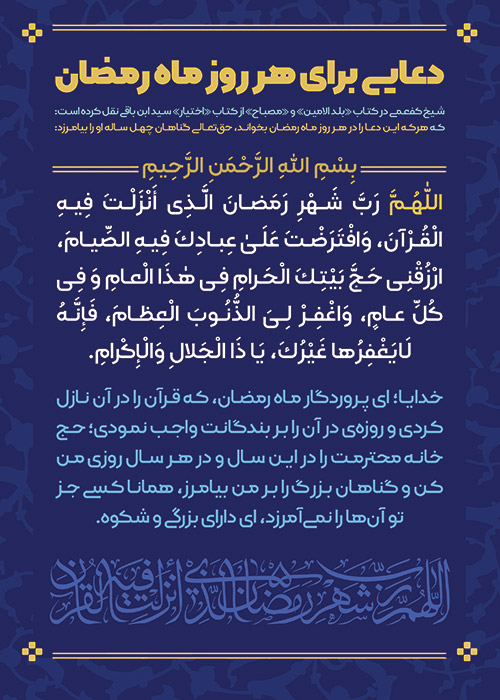 دعایی برای هر روز ماه رمضان
شیخ کفعمی در کتاب «بلد الامین» و «مصباح» از کتاب «اختیار» سید ابن باقی نقل کرده است:
که هرکه این دعا را در هر روز ماه رمضان بخواند، حق‌تعالی گناهان چهل ساله او را بیامرزد:
بِسْمِ اللهِ الرَّحْمَنِ الرَّحِیمِ
اللّٰهُمَّ رَبَّ شَهْرِ رَمَضانَ الَّذِی أَنْزَلْتَ فِیهِ
الْقُرْآنَ، وَافْتَرَضْتَ عَلَیٰ عِبادِكَ فِیهِ الصِّیامَ،
ارْزُقْنِی حَجَّ بَیْتِكَ الْحَرامِ فِی هٰذَا الْعامِ وَ فِی
كُلِّ عامٍ، وَاغْفِرْ لِیَ الذُّنُوبَ الْعِظامَ، فَإِنَّهُ
لَایَغْفِرُها غَیْرُكَ، یَا ذَا الْجَلالِ وَالْإِكْرامِ.
خدایا؛ ای پروردگار ماه رمضان، که قرآن را در آن نازل
کردی و روزه‌ی در آن را بر بندگانت واجب نمودی؛ حج
خانه محترمت را در این سال و در هر سال روزی من
کن و گناهان بزرگ را بر من بیامرز، همانا کسی جز
تو آن‌ها را نمی‌آمرزد، ای دارای بزرگی و شکوه.
اللهم رب شهر رمضان الذی انزلت فیه القرآن